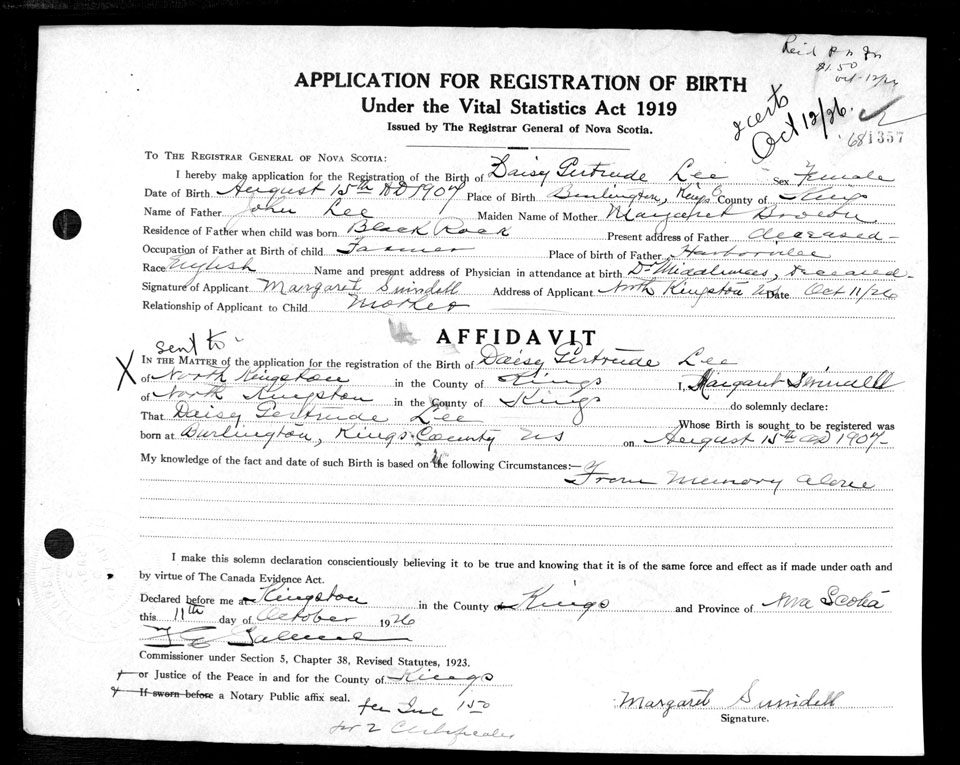 $1.50
APPLICATION FOR REGISTRATION OF BIRTH
Under the Vital Statistics Act 1919
Issued by The Registrar General of Nova Scotia.
2 certs
Oct 12/26.
681357
TO THE REGISTRAR GENERAL OF NOVA SCOTIA:
I hereby make application for the Registration of the Birth of Daisy Gertrude Lee Sex Female
Date of Birth August 15th AD 1904 Place of Birth Burlington, Kings County of Kings
Name of Father John Lee Maiden Name of Mother Margaret
Residence of Father when child was born Black Rock Present address of Father deceased
Occupation of Father at Birth of child Farmer Place of birth of Father Harborville
Race English Name and present address of Physician in attendance at birth Dr deceased
Signature of Applicant Margaret Swindell Address of Applicant North Kingston NS Date Oct 11/26
Relationship of Applicant to Child Mother
AFFIDAVIT
sent to
X IN THE MATTER of the application for the registration of the Birth of Daisy Gertrude Lee
of North Kingston in the County of Kings I, Margaret Swindell
of North Kingston in the County of Kings do solemnly declare:
That Daisy Gertrude Lee Whose Birth is sought to be registered was
born at Burlington, Kings County NS on August 15th AD 1904
My knowledge of the fact and date of such Birth is based on the following Circumstances:—
From Memory alone
I make this solemn declaration conscientiously believing it to be true and knowing that it is of the same force and effect as if made under oath and
by virtue of The Canada Evidence Act.
Declared before me at Kingston in the County Kings and Province of Nova Scotia
this 11th day of October 1926
Commissioner under Section 5, Chapter 38, Revised Statutes, 1923.
or Justice of the Peace in and for the County of Kings
If sworn before a Notary Public affix seal.
fee Inc 1.50
for 2 Certificates
Margaret Swindell
Signature.